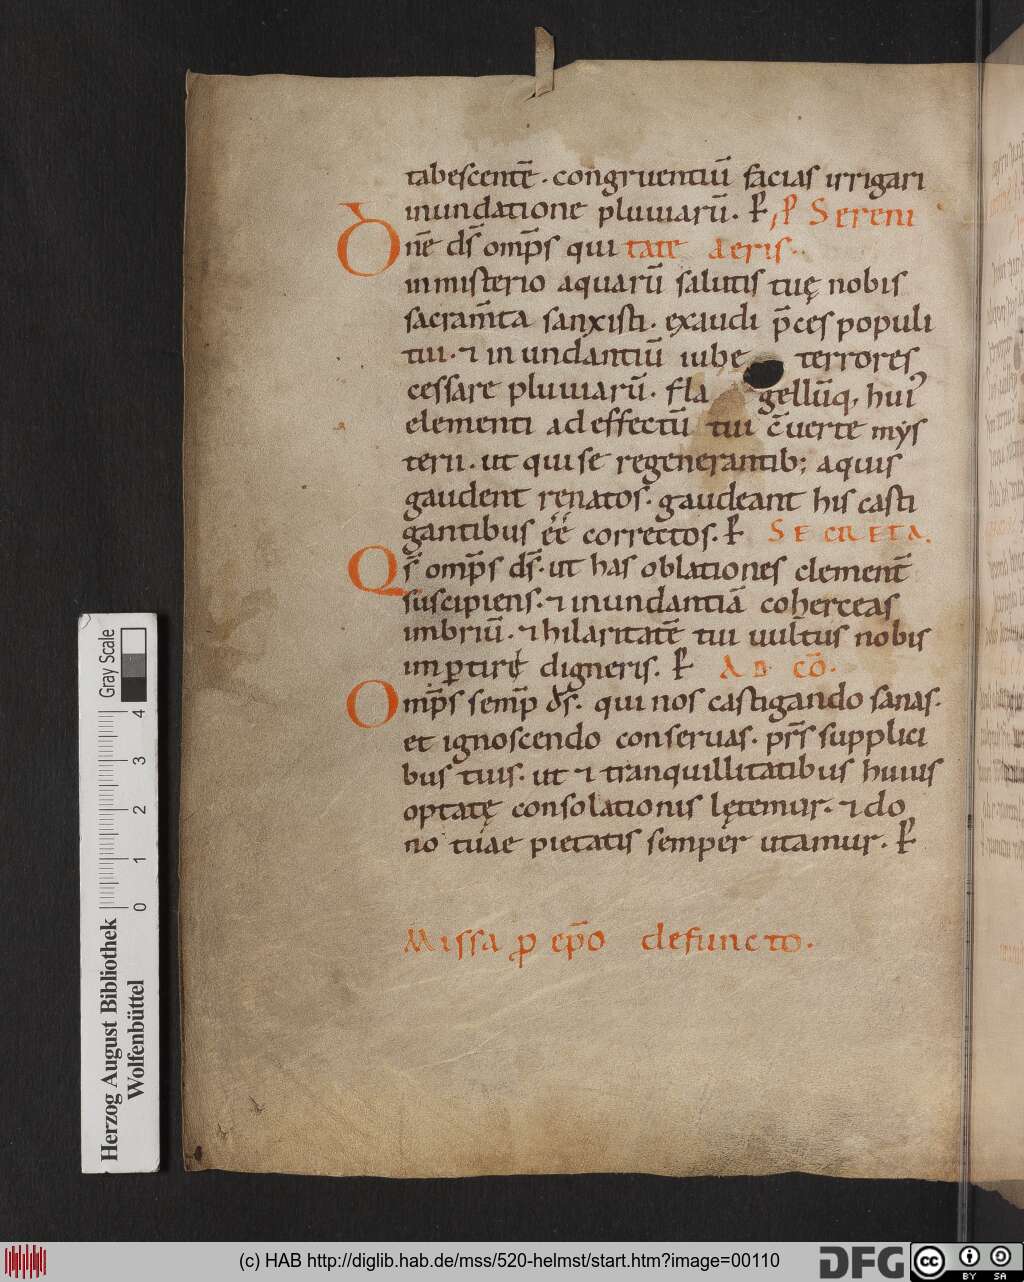 tabescentē. congruentiū facias irrigari
inundatione pluuiarū. ꝑ ꝓ Sereni
Dn̄e ds̄ omp̄s qui tate aeris.
in misterio aquarū salutis tuę nobis
sacram̄ta sanxisti. exaudi p̄ces populi
tui. & inundantiū iube terrores
cessare pluuiarū. Fla gellūq, hui᾽
elementi ad effectū tui c̄uerte mys
terii. ut qui se regenerantib; aquis
gaudent renatos. gaudeant his casti
gantibus ēē correctos. ꝑ SECRETA.
Qs̄ omp̄s ds̄. ut has oblationes clement̄
suscipiens. & inundantiā coherceas
imbriū. & hilaritatē tui uult᾽us nobis
imꝑtire digneris. ꝑ AD CŌ.
Omp̄s semp̄ ds̄. qui nos castigando sanas.
et ignoscendo conseruas. pr̄s supplici
bus tuis. ut & tranquillitatibus huius
optatę consolationis lętemur. & do
no tuae pietatis semper utamur. ꝑ
Missa ꝓ ep̄o defuncto.
Gray Scale
4 3 2 1 0
Herzog August Bibliothek
Wolfenbüttel
(c) HAB http://diglib.hab.de/mss/520-helmst/start.htm?image=00110
DFG
cc BY SA